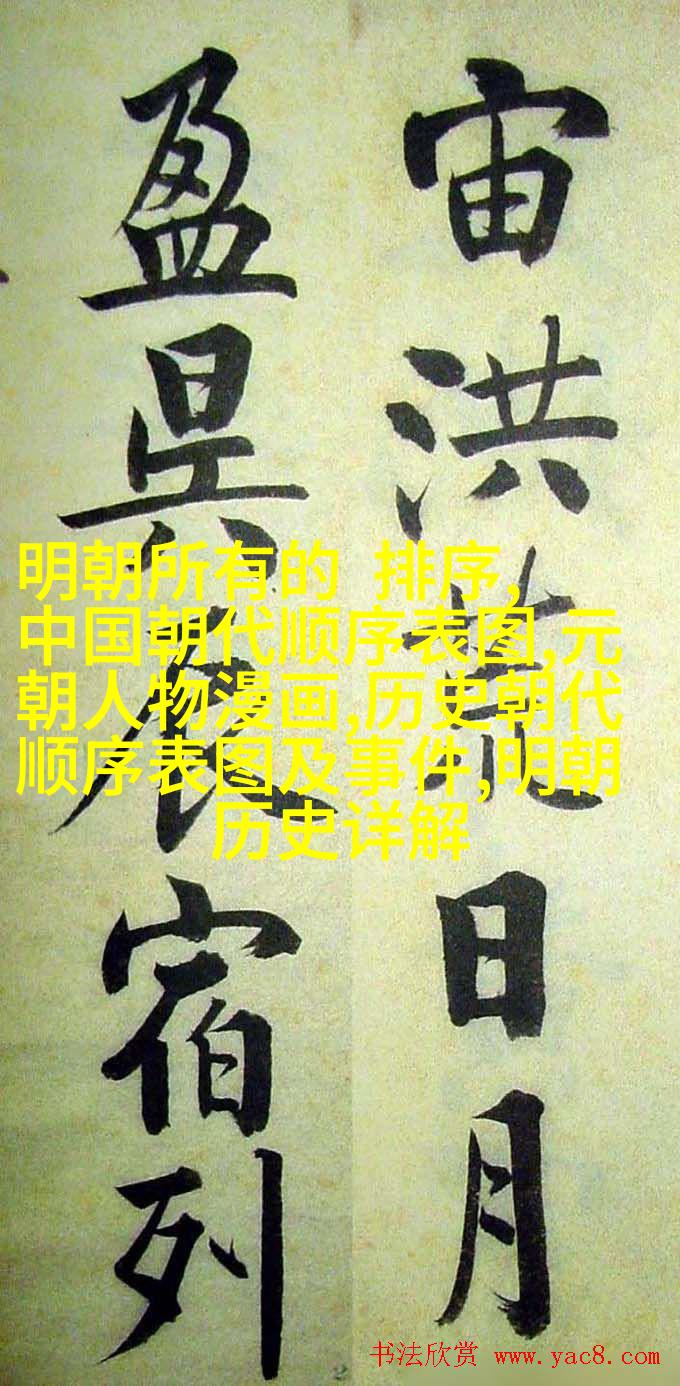 宙洪荒日月
盈昃辰宿列
明朝所有的 排序,
中国朝代顺序表图,元
朝人物漫画,历史朝代
顺序表图及事件,明朝
历史详解
书法欣赏 www.yac8.com